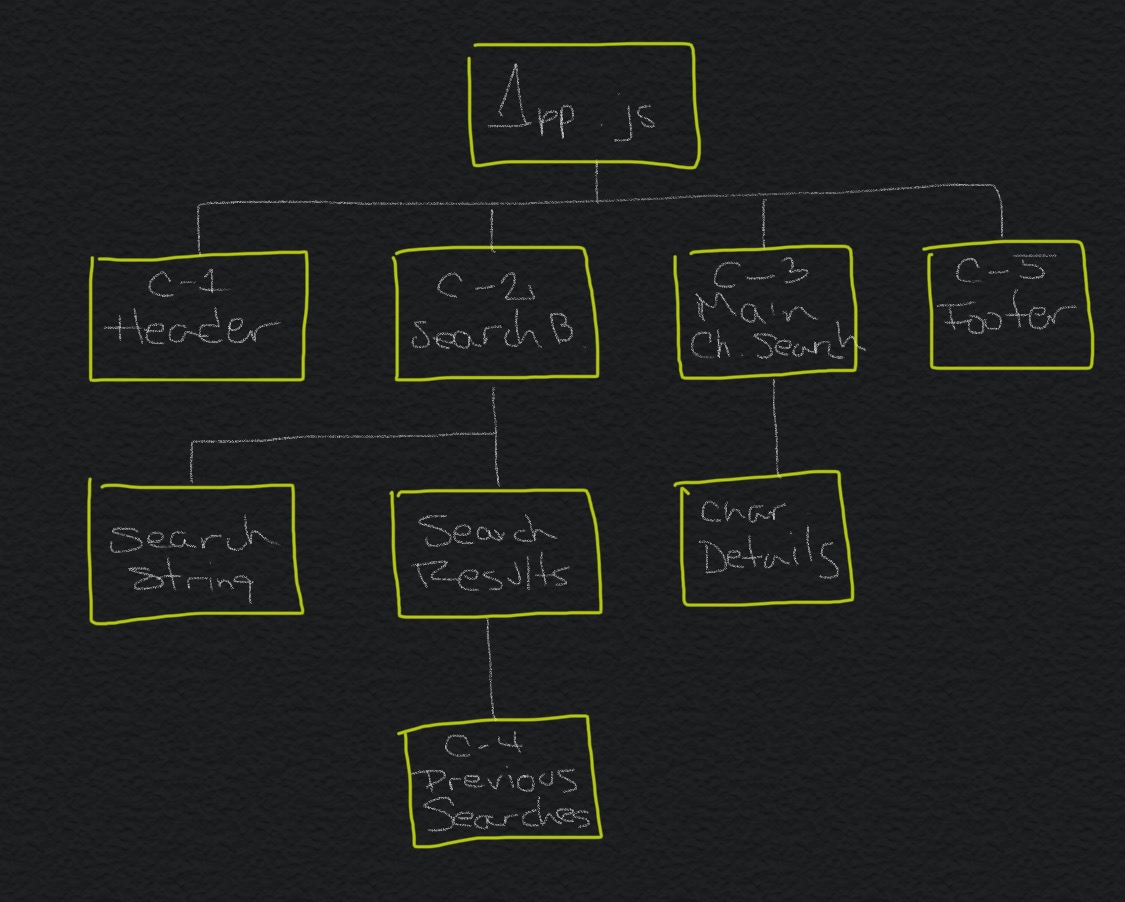 App.js
C-1
Header
C-2
Search B.
C-3
Main
Ch. Search
C-5
Footer
Search
String
Search
Results
Char
Details
C-4
Previous
Searches